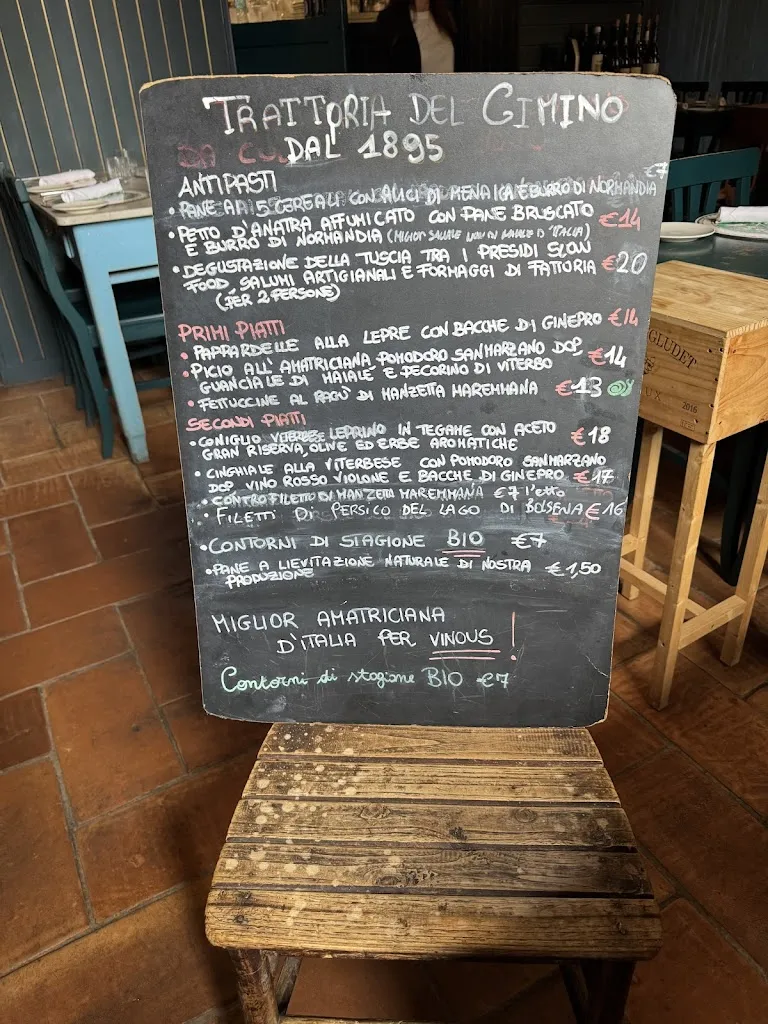 TRATTORIA DEL CIMINO
DAL 1895
ANTIPASTI
€7
• PANE AI 5 CEREALI CON ALICI DI MENAICA E BURRO DI NORMANDIA
• PETTO D'ANATRA AFFUMICATO CON PANE BRUSCATO €14
E BURRO DI NORMANDIA (MIGLIOR SALUME D'ITALIA)
• DEGUSTAZIONE DELLA TUSCIA TRA I PRESIDI SLOW
FOOD, SALUMI ARTIGIANALI E FORMAGGI DI FATTORIA €20
(PER 2 PERSONE)
PRIMI PIATTI
• PAPPARDELLE ALLA LEPRE CON BACCHE DI GINEPRO €14
• PICIO ALL'AMATRICIANA POMODORO SAN MARZANO DOP, €14
GUANCIALE DI MAIALE E PECORINO DI VITERBO
• FETTUCCINE AL RAGÙ DI MANZETTA MAREMMANA €13
SECONDI PIATTI
• CONIGLIO VITERBESE LEPRINO IN TEGAME CON ACETO €18
GRAN RISERVA, OLIVE ED ERBE AROMATICHE
• CINGHIALE ALLA VITERBESE CON POMODORO SAN MARZANO
DOP VINO ROSSO VIOLONE E BACCHE DI GINEPRO €17
• CONTROFILETTO DI MANZETTA MAREMMANA €7 l'etto
• FILETTI DI PERSICO DEL LAGO DI BOLSENA €16
• CONTORNI DI STAGIONE BIO €7
• PANE A LIEVITAZIONE NATURALE DI NOSTRA €1,50
PRODUZIONE
MIGLIOR AMATRICIANA
D'ITALIA PER VINOUS!
Contorni di stagione BIO €7
GLUDET
2016